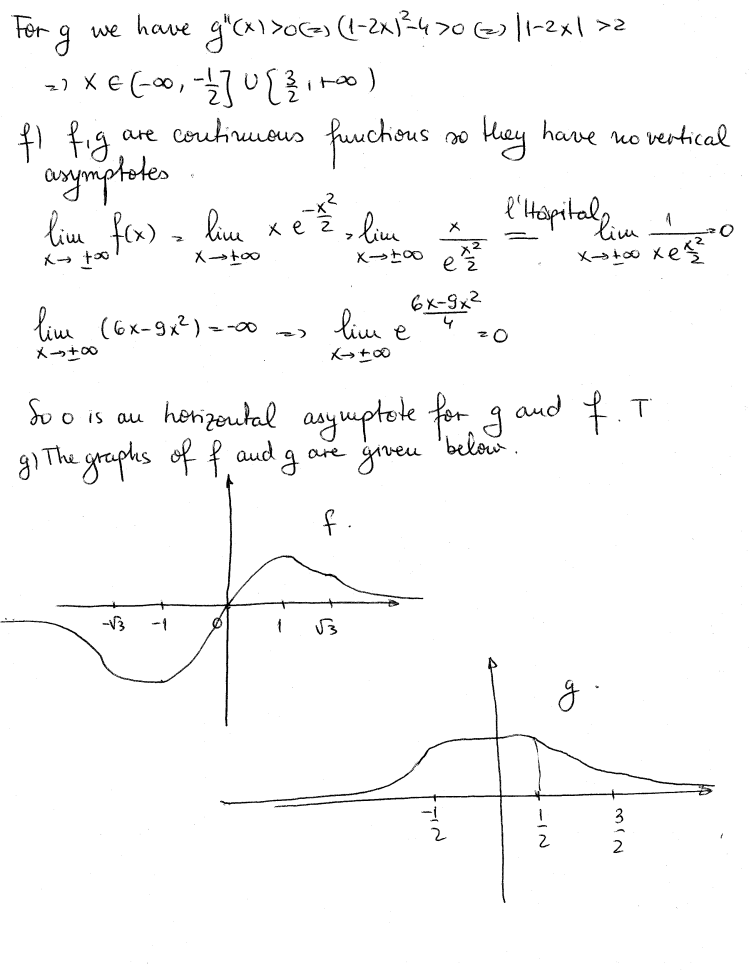 For g we have g''(x) > 0 (=) (1-2x)²-4 > 0 (=) |1-2x| > 2
=) x ∈ (-∞, -1/2] ∪ [3/2, +∞)
f) f,g are continuous functions so they have no vertical
asymptotes.
lim x→±∞ f(x) = lim x→±∞ x e^(-x²/2) = lim x→±∞ x/e^(x²/2) l'Hospital = lim x→±∞ 1/(x e^(x²/2)) = 0
lim x→±∞ (6x-9x²) = -∞ =) lim x→±∞ e^((6x-9x²)/4) = 0
So 0 is an horizontal asymptote for g and f. T
g) The graphs of f and g are given below.
f.
-√3 -1 0 1 √3
g.
-1/2 1/2 3/2